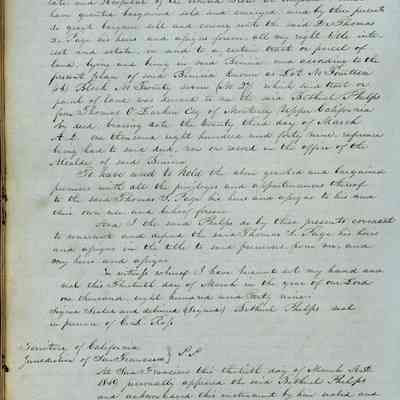 have granted bargained sold and conveyed and by these presents
do grant bargain sell and convey unto the said Dr Thomas
S. Page his heirs and assigns forever all my right title inter-
est and estate in and to a certain tract or parcel of
land lying and being in said Benicia and according to the
present plan of said Benicia known as Lot No Fourteen
(14) Block No Twenty seven (No 27) which said tract or
parcel of land was deeded to me the said Bethuel Phelps
from Thomas O. Larkin City of Monterey Upper California
by deed bearing date the twenty third day of March
A.D. one thousand eight hundred and forty nine, reference
being had to said deed, now on record in the office of the
Alcalde of said Benicia
To have and to hold the above granted and bargained
premises with all the privileges and appurtenances thereof
to the said Thomas S. Page his heirs and assigns to his and
their own use and behoof forever
And I the said Phelps do by these presents covenant
to warrant and defend the said Thomas S. Page his heirs
and assigns in the title to said premises from me, and
my heirs and assigns
In witness whereof I have hereunto set my hand and
seal this Thirtieth day of March in the year of our Lord
one thousand eight hundred and forty nine
Signed Sealed and delivered (Signed) Bethuel Phelps seal
in presence of C. L. Ross
Territory of California
Jurisdiction of San Francisco } S.S.
At San Francisco this thirtieth day of March A.D.
1849 personally appeared the said Bethuel Phelps
and acknowledged this instrument by him sealed and